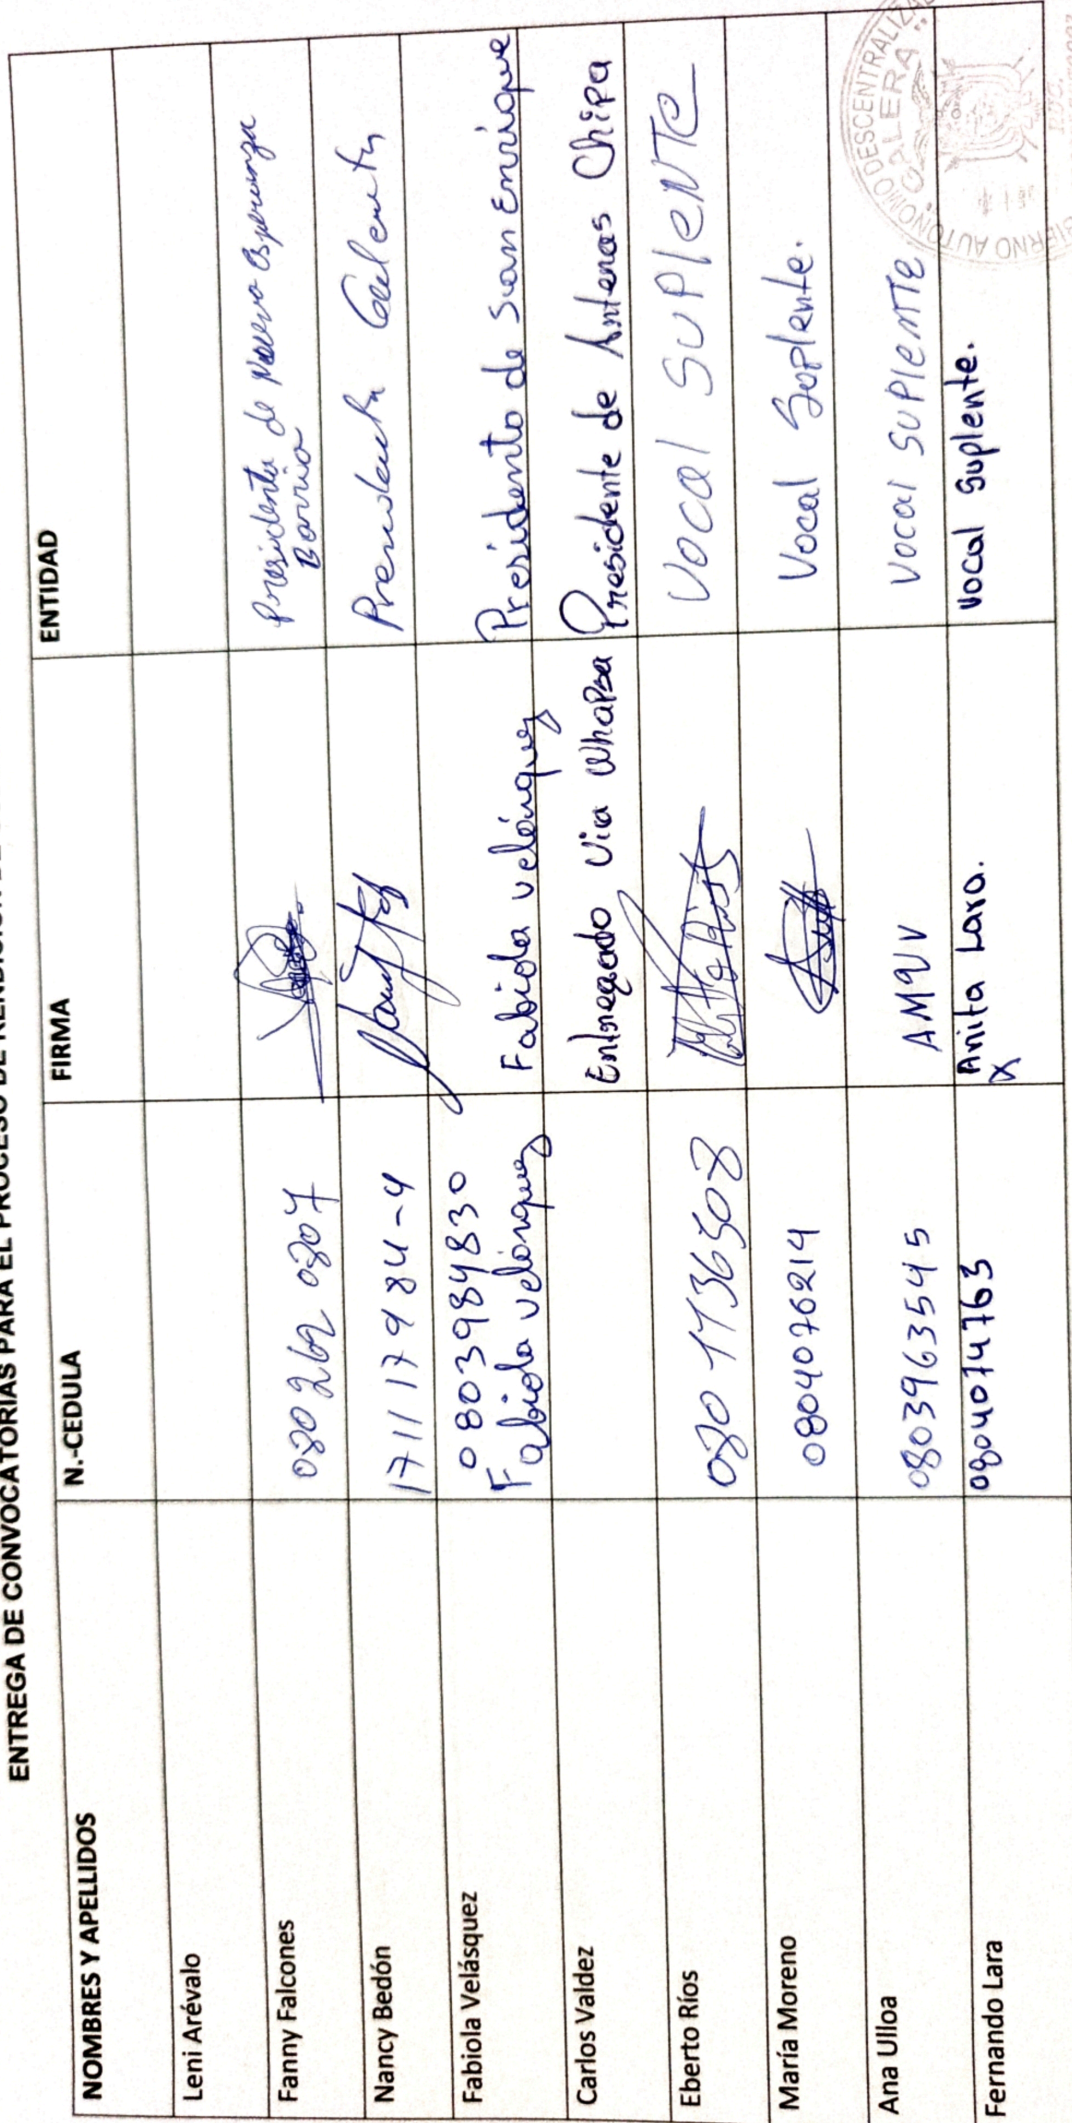 ENTREGA DE CONVOCATORIAS PARA EL PROCESO DE RENDICIÓN DE
NOMBRES Y APELLIDOS N.-CEDULA FIRMA ENTIDAD
Leni Arévalo
Fanny Falcones 080262 0807 Presidenta de Nueva Esperanza
Barrio
Nancy Bedón 171117984-4 Presidenta
Fabiola Velásquez 0803984830 Fabiola velásquez Presidenta de Juan Enrique
Fabiola velásquez
Carlos Valdez Entregado Via Whapsa Presidente de Antenas Chipa
Eberto Ríos 080 1136508 Vocal SUPlENTe
María Moreno 0804076214 Vocal Suplente.
Ana Ulloa 0803963545 AMUV Vocal SUPlemTe
Fernando Lara 0804074763 Anita Lara. Vocal Suplente.
X
GOBIERNO AUTÓNOMO DESCENTRALIZADO
GALERA